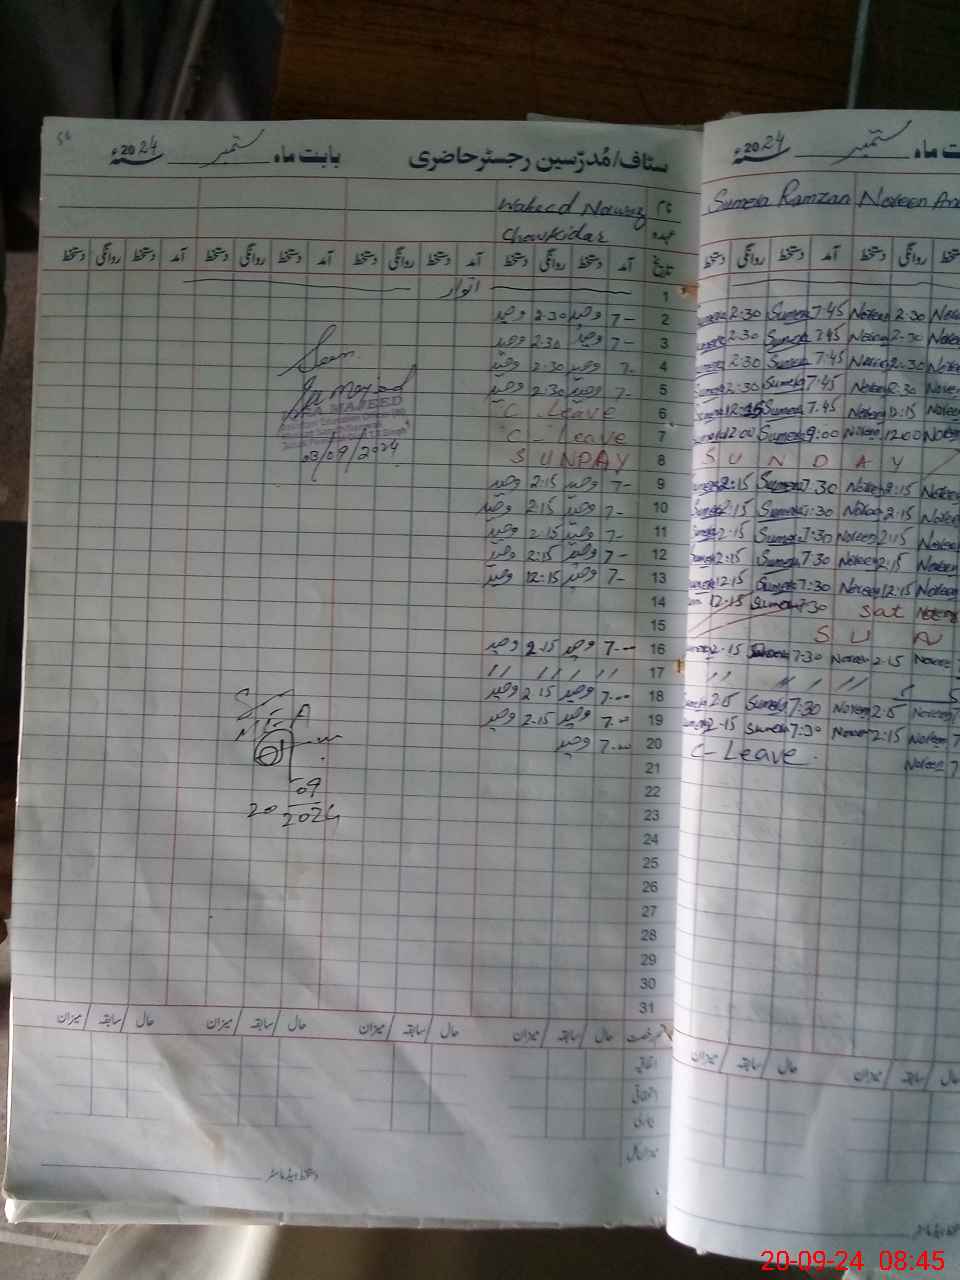 سٹاف/مُدرّسین رجسٹر حاضری بابت ماہ ستمبر 2024ء
نام Waheed Nawaz
عہدہ Chowkidar
تاریخ آمد دستخط روانگی دستخط آمد دستخط روانگی دستخط آمد دستخط روانگی دستخط آمد دستخط روانگی دستخط
1 اتوار
2 7- وحید 2:30 وحید
3 7- وحید 2:30 وحید
4 7- وحید 2:30 وحید
5 7- وحید 2:30 وحید
6 C Leave
7 C-Leave
8 SUNDAY
9 7- وحید 2:15 وحید
10 7- وحید 2:15 وحید
11 7- وحید 2:15 وحید
12 7- وحید 2:15 وحید
13 7- وحید 12:15 وحید
14
15
16 7-- وحید 2.15 وحید
17 // // // //
18 7-- وحید 2.15 وحید
19 7-- وحید 2.15 وحید
20 7-- وحید
21
22
23
24
25
26
27
28
29
30
31
MAJEED
03/09/2024
MEA
20 09 2024
حال سابقہ میزان حال سابقہ میزان حال سابقہ میزان حال سابقہ میزان
اتفاقیہ
میزان کل
دستخط ہیڈ ماسٹر
ت ماہ ستمبر 2024ء
Sumera Ramzan Noreen
دستخط روانگی دستخط آمد دستخط روانگی
Sumera 2:30 Sumera 7:45 Noreen 2:30 Noreen
Sumera 2:30 Sumera 7:45 Noreen 2:30 Noreen
Sumera 2:30 Sumera 7:45 Noreen 2:30 Noreen
Sumera 2:30 Sumera 7:45 Noreen 2:30 Noreen
Sumera 12:15 Sumera 7:45 Noreen 12:15 Noreen
Sumera 12:00 Sumera 9:00 Noreen 12:00 Noreen
SUNDAY
Sumera 2:15 Sumera 7:30 Noreen 2:15 Noreen
Sumera 2:15 Sumera 7:30 Noreen 2:15 Noreen
Sumera 2:15 Sumera 7:30 Noreen 2:15 Noreen
Sumera 2:15 Sumera 7:30 Noreen 2:15 Noreen
Sumera 12:15 Sumera 7:30 Noreen 12:15 Noreen
12:15 Sumera 7:30 Sat Noreen
S U N
Sumera 2:15 Sumera 7:30 Noreen 2:15 Noreen
// // //
Sumera 2:15 Sumera 7:30 Noreen 2:15 Noreen 7
Sumera 2:15 Sumera 7:30 Noreen 2:15 Noreen 7
C-Leave. Noreen 7
حال سابقہ میزان حال سابقہ میزان
20-09-24 08:45